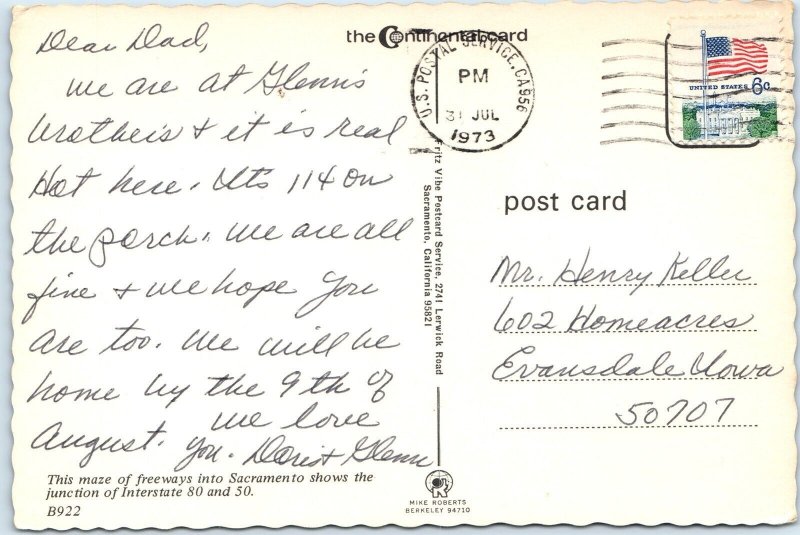 Dear Dad,
We are at Glenn's
brothers & it is real
Hot here. It's 114 on
the porch. We are all
fine & we hope you
are too. We will be
home by the 9th of
August. We love
you. Doris & Glenn
This maze of freeways into Sacramento shows the
junction of Interstate 80 and 50.
B922
the Continental card
U.S. POSTAL SERVICE, CA 956
PM
31 JUL
1973
UNITED STATES 6c
Fritz Vibe Postcard Service, 2741 Lerwick Road
Sacramento, California 95821
post card
Mr. Henry Keller
602 Homeacres
Evansdale Iowa
50707
MIKE ROBERTS
BERKELEY 94710